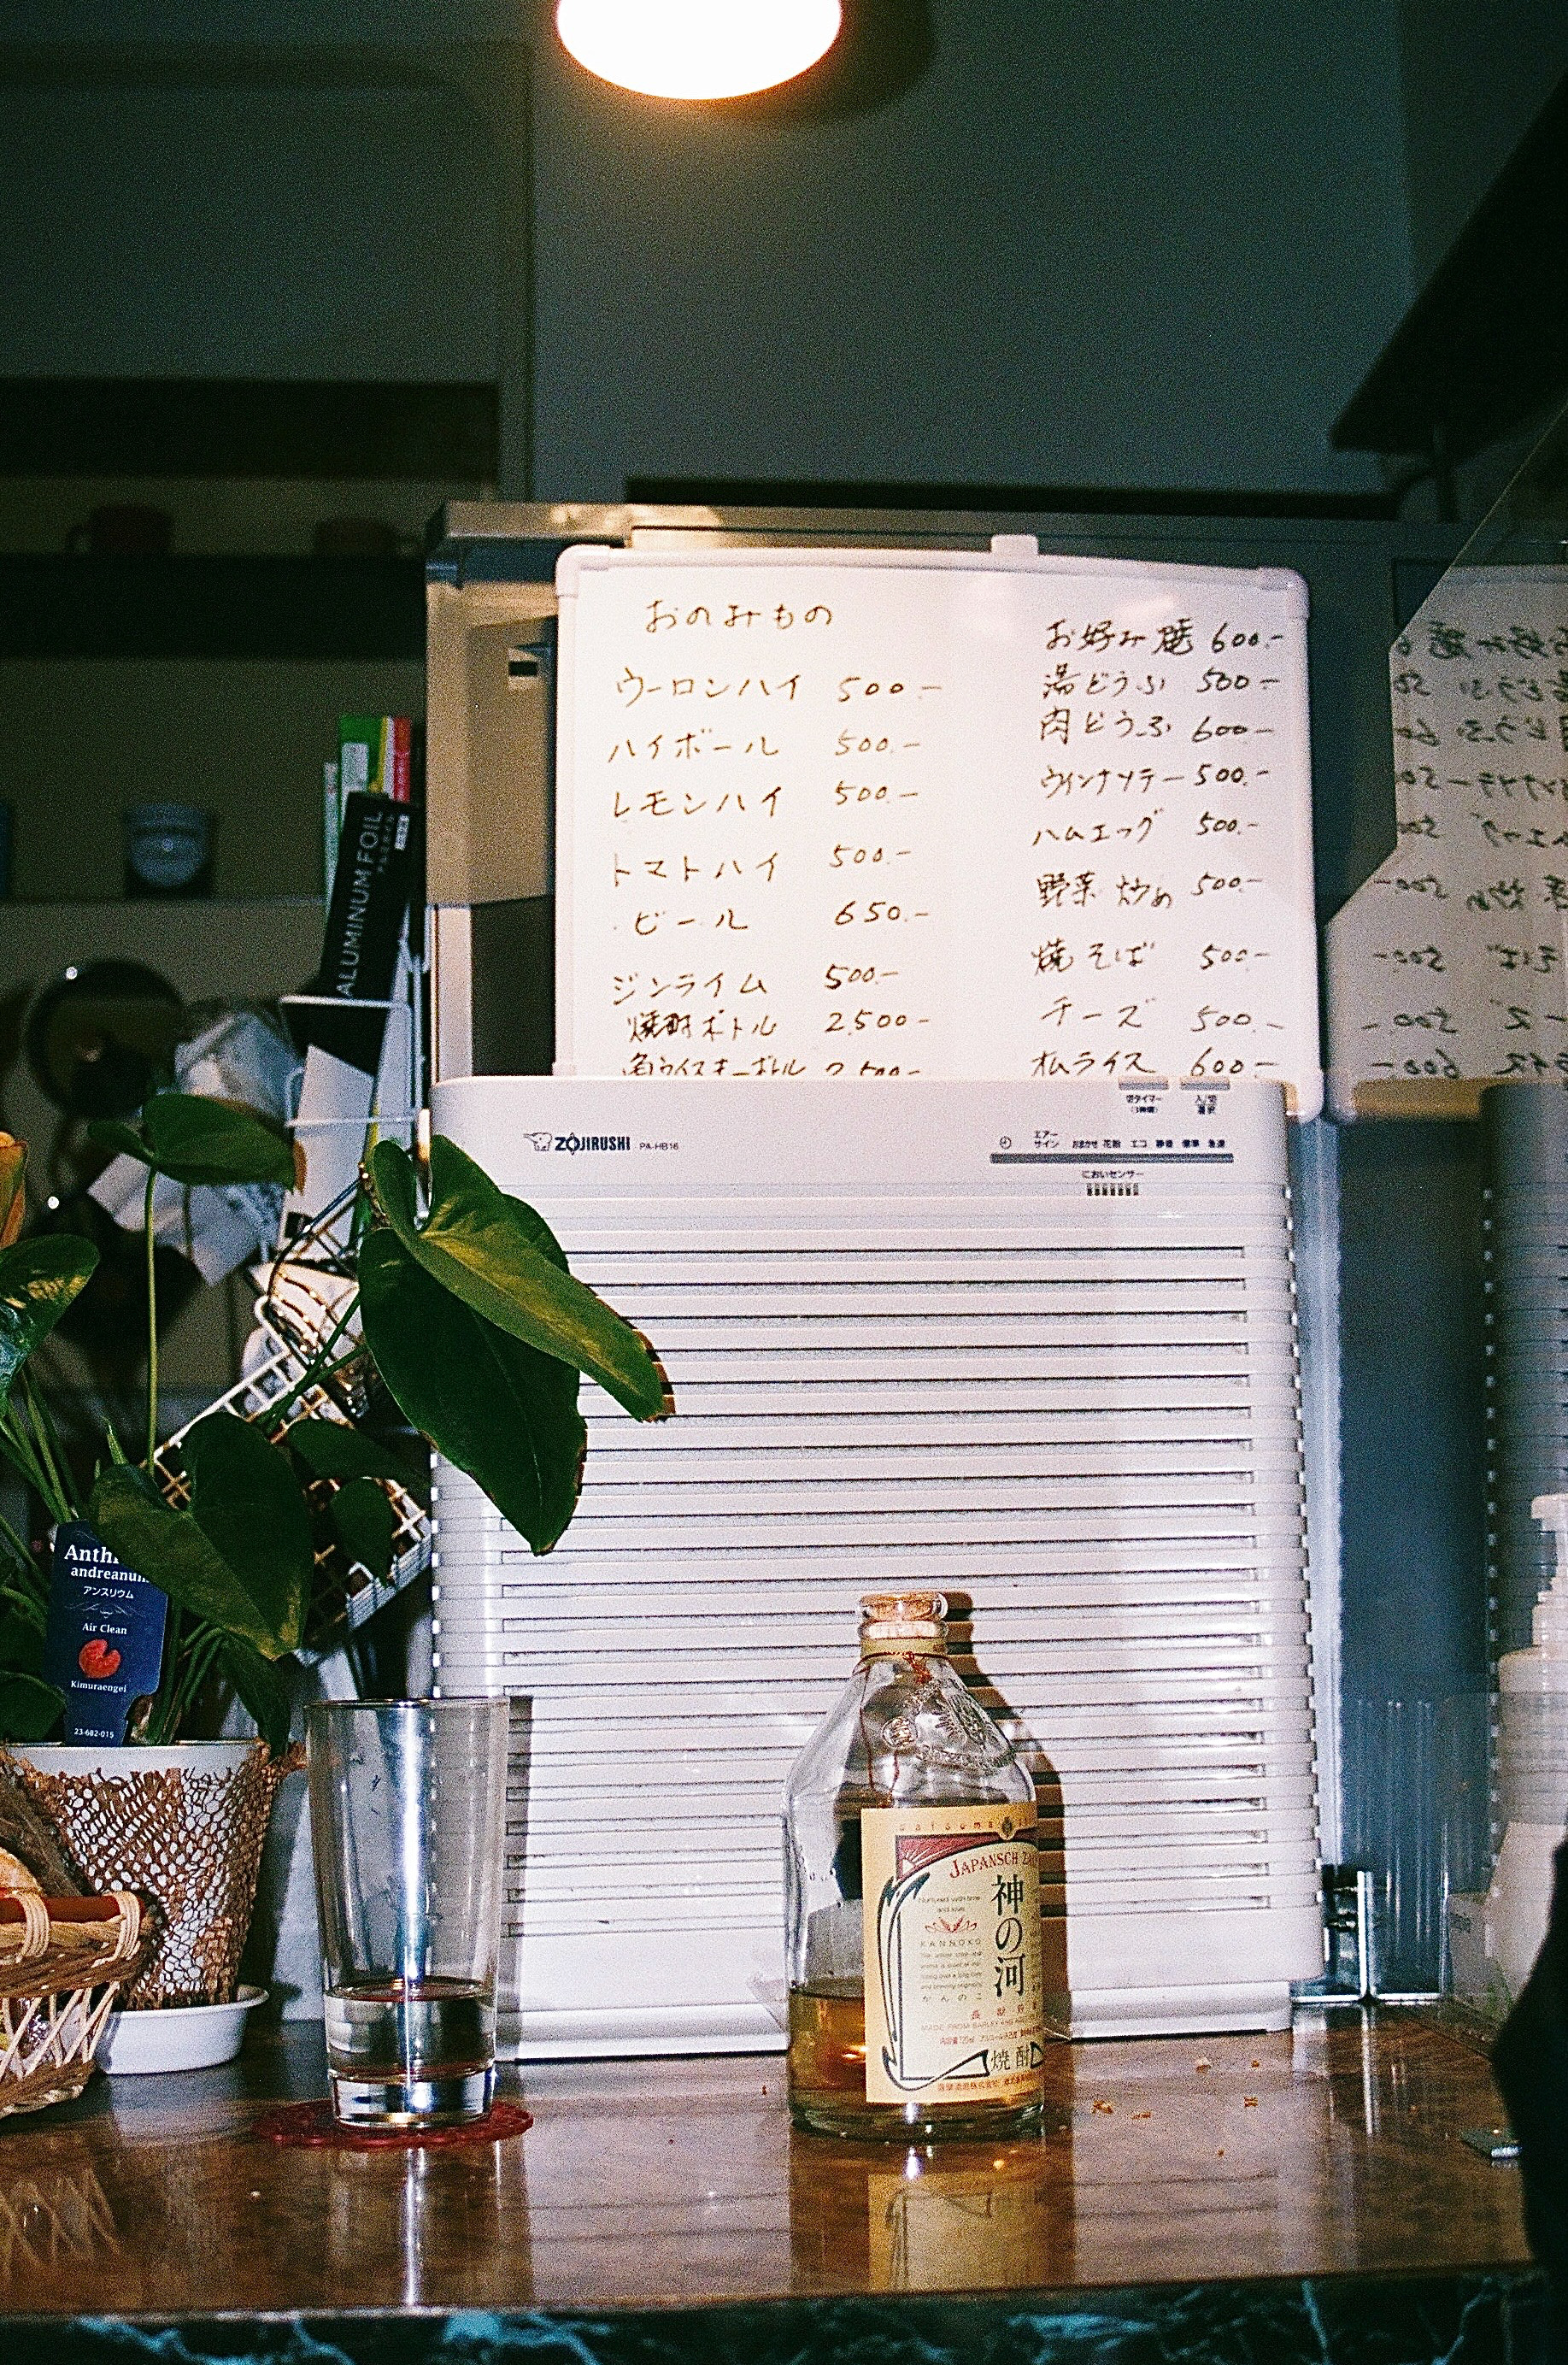 おのみもの
ウーロンハイ 500.-
ハイボール 500.-
レモンハイ 500.-
トマトハイ 500.-
ビール 650.-
ジンライム 500.-
焼酎ボトル 2,500-
角ウイスキーボトル 2,500-
お好み焼 600.-
湯どうふ 500-
肉どうふ 600-
ウインナソテー 500.-
ハムエッグ 500.-
野菜炒め 500.-
焼そば 500.-
チーズ 500.-
オムライス 600.-
ALUMINUM FOIL
切タイマー 入/切
(1時間) 選択
ZOJIRUSHI PA-HB16
エアーサイン おまかせ 花粉 エコ 静音 標準 急速
においセンサー
Anth
andreanum
アンスリウム
Air Clean
Kimuraengei
23-682-015
satsuma
JAPANSCH
神の河
KANNOKO
かんのこ
焼酎